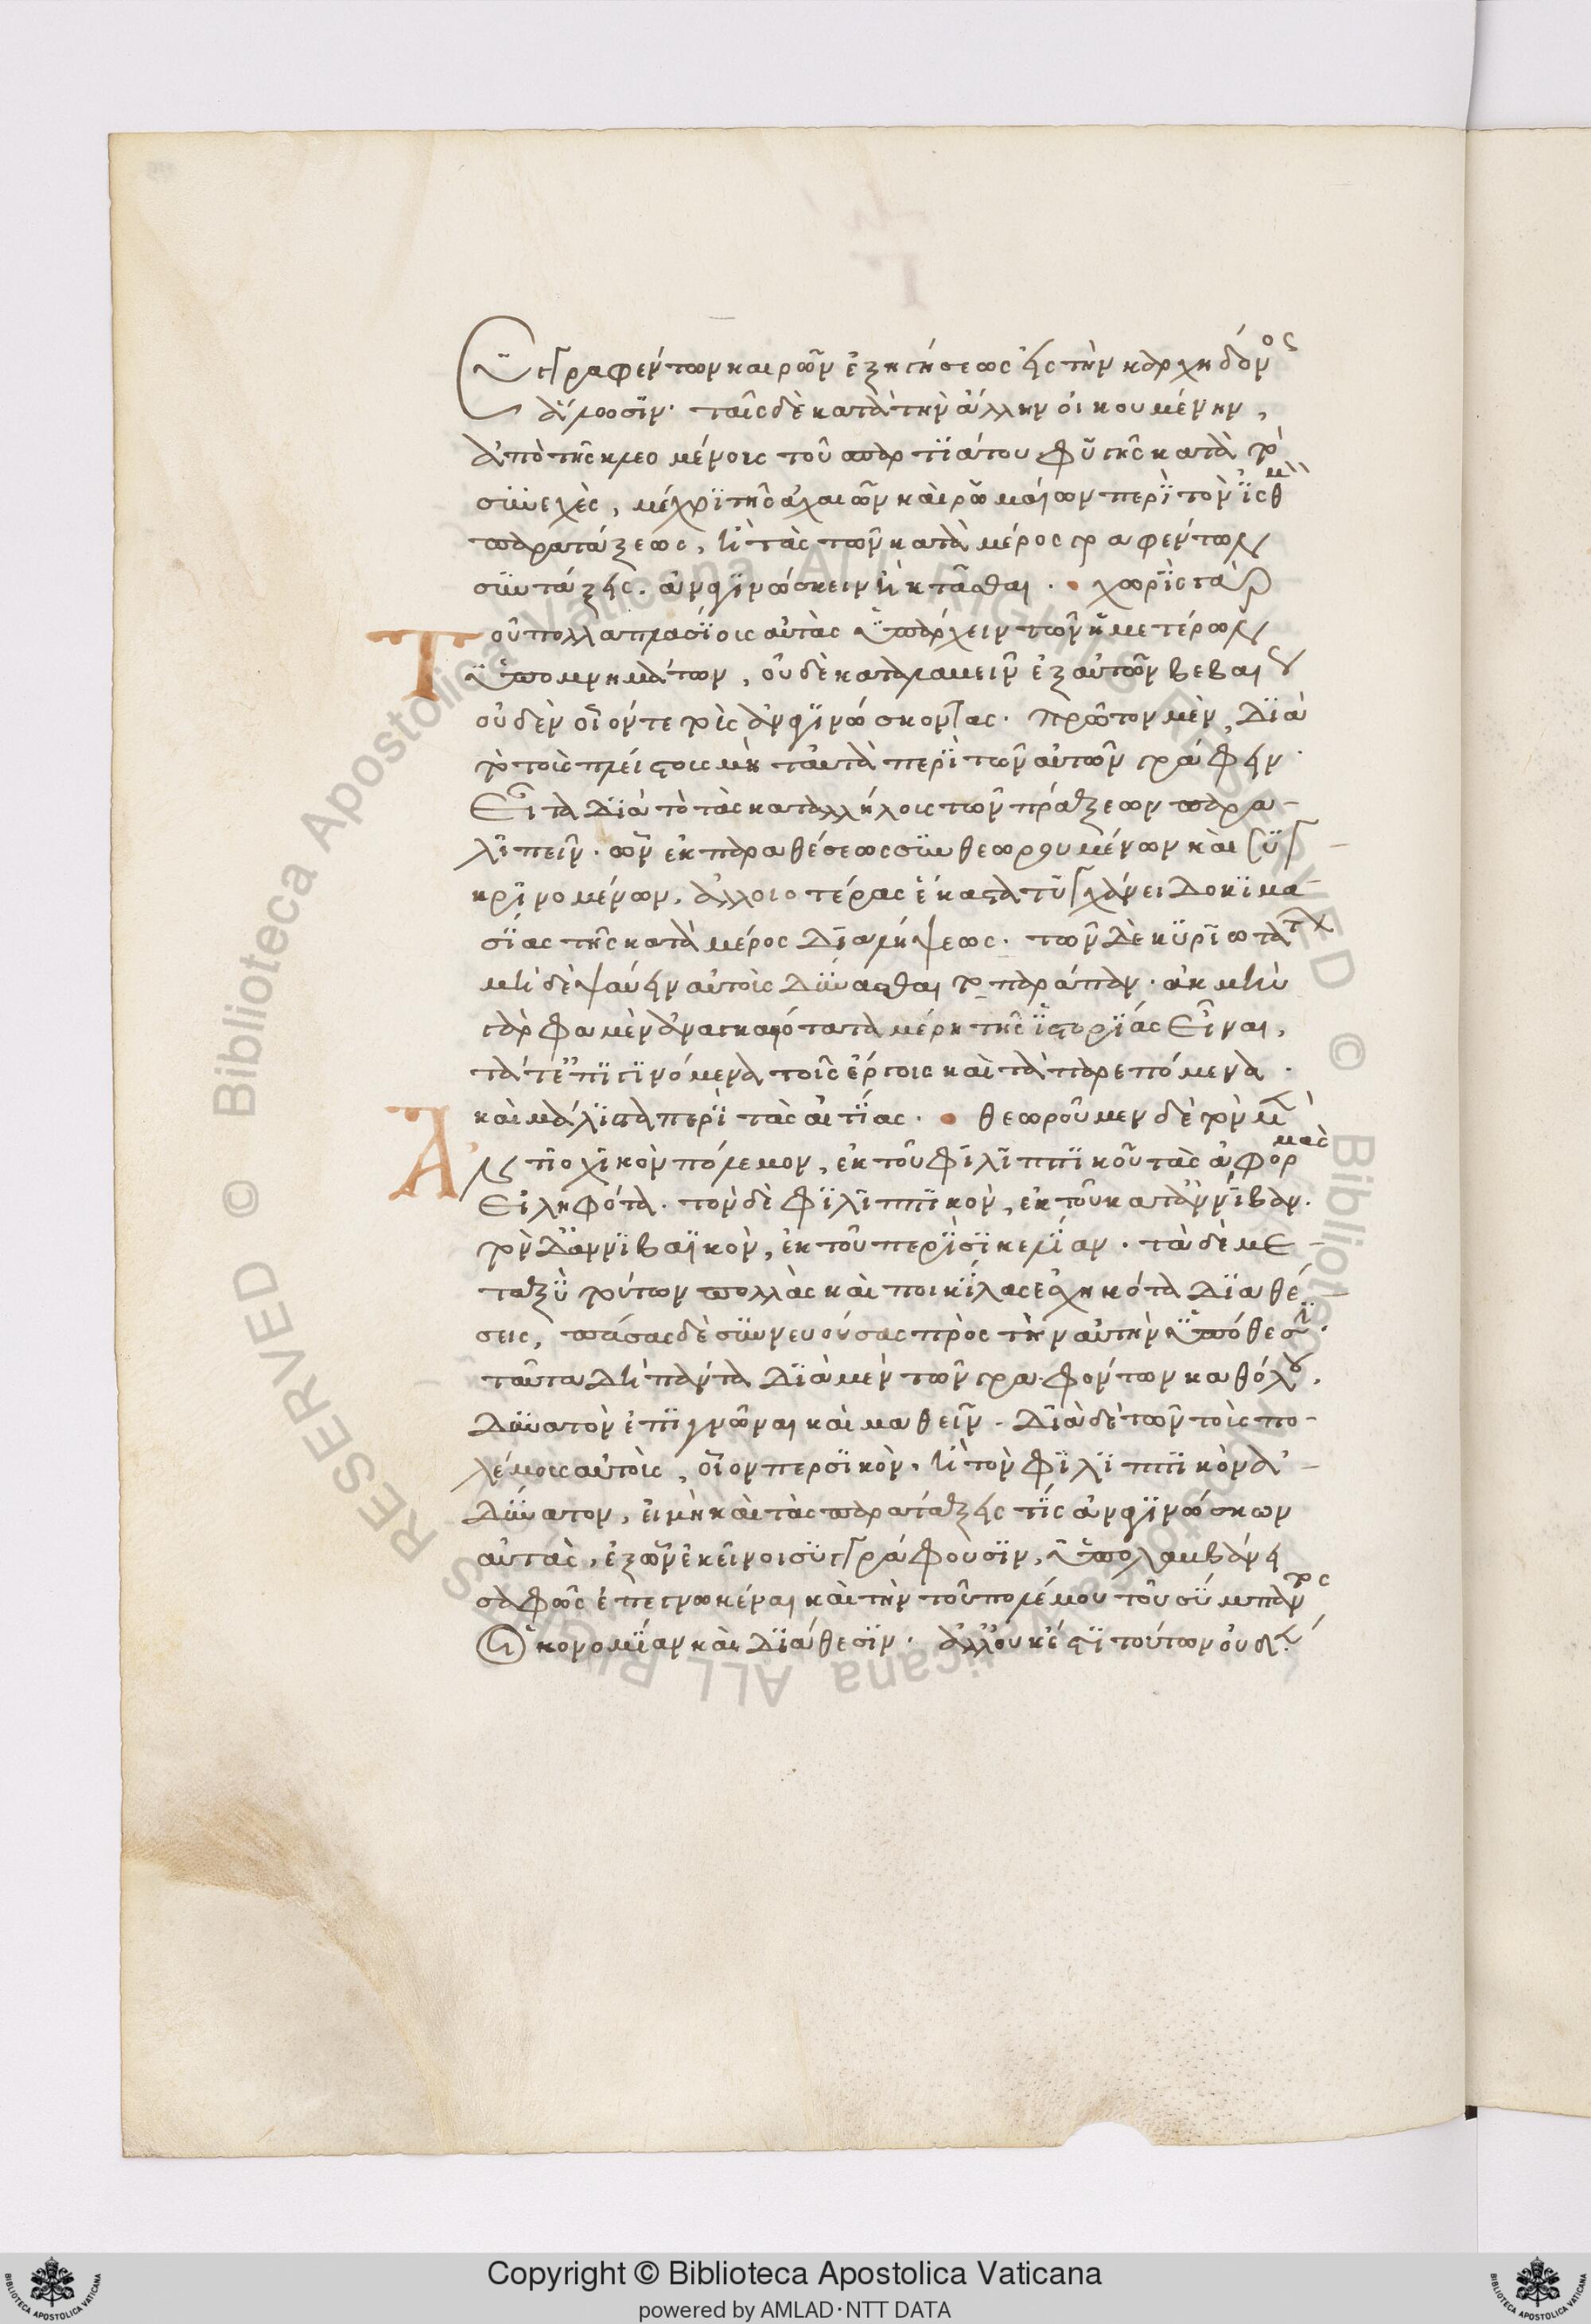 ϋγγραφέντων καιρῶν ἐξηγήσεως εἰς τὴν καρχηδόνος
ἅλωσιν· ταῖς δὲ κατὰ τὴν ἄλλην οἰκουμένην,
ἀπὸ τῆς κλεομένοις τοῦ σπαρτϊάτου φϋγῆς κατὰ τὸ
σϋνεχὲς, μέχρϊ τῆς ἀχαιῶν καὶ ῥωμαίων περϊ τὸν ἰσθμὸν
παρατάξεως, ἢ τὰς τῶν κατὰ μέρος γραφέντων
σϋντάξεις ἀναγϊνώσκειν ἢ κτᾶσθαι. χωρϊς γὰρ
Τοῦ πολλαπλασϊοις αὐτὰς ϋπάρχειν τῶν ἡμετέρων
ϋπομνημάτων, οὐδὲ καταλαβεῖν ἐξ αὐτῶν βεβαίου
οὐδὲν οἷόν τε τοὺς ἀναγϊνώσκοντας. πρῶτον μὲν, διὰ
τὸ τοὺς πλείστους μὴ ταυτὰ περϊ τῶν αὐτῶν γράφειν.
Εἶτα διὰ τὸ τὰς καταλλήλοις τῶν πράξεων παρα-
λϊπεῖν. ὧν ἐκ παραθέσεως σϋνθεωρουμένων καὶ σϋγ-
κρϊνομένων, ἀλλοιοτέρας ἕκαστα τϋγχάνει δοκϊμα-
σϊας τῆς κατὰ μέρος διαλήψεως. τῶν δὲ κϋρϊωτάτων
μηδὲ ψαύειν αὐτοὺς δϋνασθαι τὸ παράπαν. ἀκμὴν
γὰρ φαμὲν ἀναγκαιότατα μέρη τῆς ϊστορϊας εἶναι,
τά τ' ἐπϊγϊνόμενα τοῖς ἔργοις καὶ τὰ παρεπόμενα.
καὶ μάλϊστα περϊ τὰς αἰτϊας. θεωροῦμεν δὲ τὸν μὲν
Ἀντϊοχϊκὸν πόλεμον, ἐκ τοῦ φϊλϊππϊκοῦ τὰς ἀφορμὰς
Εἰληφότα. τὸν δὲ φϊλϊππϊκὸν, ἐκ τοῦ κατ' ἀννϊβαν.
τὸν δ' ἀννϊβαϊκὸν, ἐκ τοῦ περϊ σϊκελϊαν. τὰ δὲ με-
ταξϋ τούτων πολλὰς καὶ ποικϊλας ἐσχηκότα διαθέ-
σεις, πάσας δὲ σϋννευούσας πρὸς τὴν αὐτὴν ϋπόθεσϊν.
ταῦτα δὴ πάντα διὰ μὲν τῶν γραφόντων καθόλου,
δϋνατὸν ἐπϊγνῶναι καὶ μαθεῖν. διὰ δὲ τῶν τοὺς πο-
λέμους αὐτοὺς, οἷον περσϊκὸν. ἢ τὸν φϊλϊππϊκὸν ἀ-
δϋνατον, εἰ μὴ καὶ τὰς παρατάξεις τϊς ἀναγϊνώσκων
αὐτὰς, ἐξ ὧν ἐκεῖνοι σϋγγράφουσϊν, ϋπολαμβάνει
σαφῶς ἐπεγνωκέναι καὶ τὴν τοῦ πολέμου τοῦ σϋμπαντος
Οἰκονομϊαν καὶ διάθεσϊν. ἀλλ' οὐκ ἔστϊ τούτων οὐδὲν